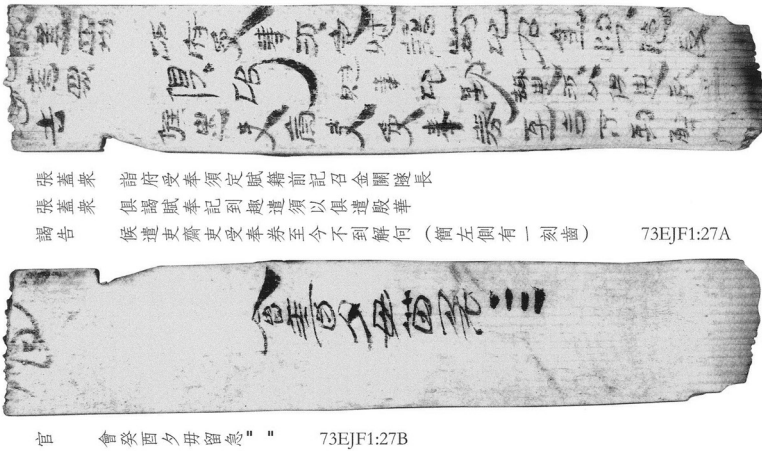 張蓋衆　詣府受奉須定賦籍前記召金關隧長
張蓋衆　俱謁賦奉記到趣遣須以俱遣殷華
謁告　候遣吏齎吏受奉券至今不到解何（簡左側有一刻齒）　73EJF1:27A
官　會癸酉夕毋留急" "　73EJF1:27B